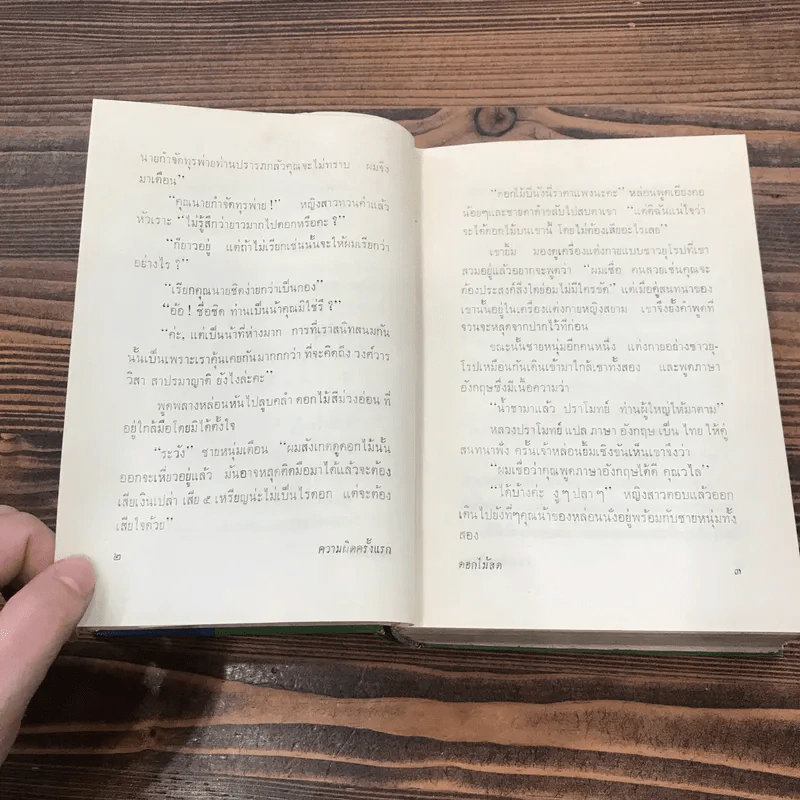 นายกำจัดทุรพ่ายท่านปรารภกลัวคุณจะไม่ทราบ ผมจึง
มาเตือน”
“คุณนายกำจัดทุรพ่าย!” หญิงสาวทวนคำแล้ว
หัวเราะ “ไม่รู้สึกว่ายาวมากไปดอกหรือคะ ?”
“ก็ยาวอยู่ แต่ถ้าไม่เรียกเช่นนั้นจะให้ผมเรียกว่า
อย่างไร ?”
“เรียกคุณนายชิดง่ายกว่าเป็นกอง”
“อ้อ! ชื่อชิด ท่านเป็นน้าคุณมิใช่รึ ?”
“ค่ะ, แต่เป็นน้าที่ห่างมาก การที่เราสนิทสนมกัน
นั้นเป็นเพราะเราคุ้นเคยกันมากกว่า ที่จะคิดถึง วงศ์วาร
วิสา สาปรมาญาติ ยังไงล่ะคะ”
พูดพลางหล่อนหันไปลูบคลำ ดอกไม้สีม่วงอ่อน ที่
อยู่ใกล้มือโดยมิได้ตั้งใจ
“ระวัง” ชายหนุ่มเตือน “ผมสังเกตดูดอกไม้นั้น
ออกจะเหี่ยวอยู่แล้ว มันอาจหลุดติดมือมาได้แล้วจะต้อง
เสียเงินเปล่า เสีย ๕ เหรียญน่ะไม่เป็นไรดอก แต่จะต้อง
เสียใจด้วย”
๒ ความผิดครั้งแรก
“ดอกไม้บนั่งนี้ราคาแพงนะคะ” หล่อนพูดเอียงคอ
น้อยๆและชายตาดำขลับไปสบตาเขา “แต่ดิฉันแน่ใจว่า
จะได้ดอกไม้บนเขานี้ โดยไม่ต้องเสียอะไรเลย”
เขายิ้ม มองดูเครื่องแต่งกายแบบชาวยุโรปที่เขา
สวมอยู่แล้วอยากจะพูดว่า “ผมเชื่อ คนสวยเช่นคุณจะ
ต้องประสงค์สิ่งใดย่อมไม่มีใครขัด” แต่เมื่อคู่สนทนาของ
เขานั้นอยู่ในเครื่องแต่งกายหญิงสยาม เขาจึงยั้งคำพูดที่
จวนจะหลุดจากปากไว้ทีก่อน
ขณะนั้นชายหนุ่มอีกคนหนึ่ง แต่งกายอย่างชาวยุ-
โรปเหมือนกันเดินเข้ามาใกล้เขาทั้งสอง และพูดภาษา
อังกฤษซึ่งมีเนื้อความว่า
“น้ำชามาแล้ว ปราโมทย์ ท่านผู้ใหญ่ให้มาตาม”
หลวงปราโมทย์ แปล ภาษา อังกฤษ เป็น ไทย ให้คู่
สนทนาฟัง ครั้นเจ้าหล่อนยิ้มเชิงขันเห็นเขาจึงว่า
“ผมเชื่อว่าคุณพูดภาษาอังกฤษได้ดี คุณวไล”
“ได้บ้างค่ะ งูๆ ปลาๆ” หญิงสาวตอบแล้วออก
เดินไปยังที่ๆคุณน้าของหล่อนนั่งอยู่พร้อมกับชายหนุ่มทั้ง
สอง
ดอกไม้สด ๓